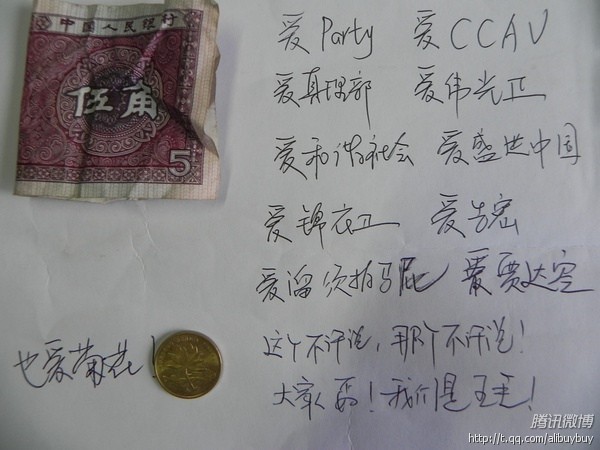 中国人民银行
伍角
5
爱Party 爱CCAV
爱真理部 爱伟光正
爱和谐社会 爱盛世中国
爱锦衣卫 爱告密
爱溜须拍马屁 爱贾达空
这个不许说，那个不许说！
大家
我们是
也爱菊花！
腾讯微博
http://t.qq.com/alibuybuy